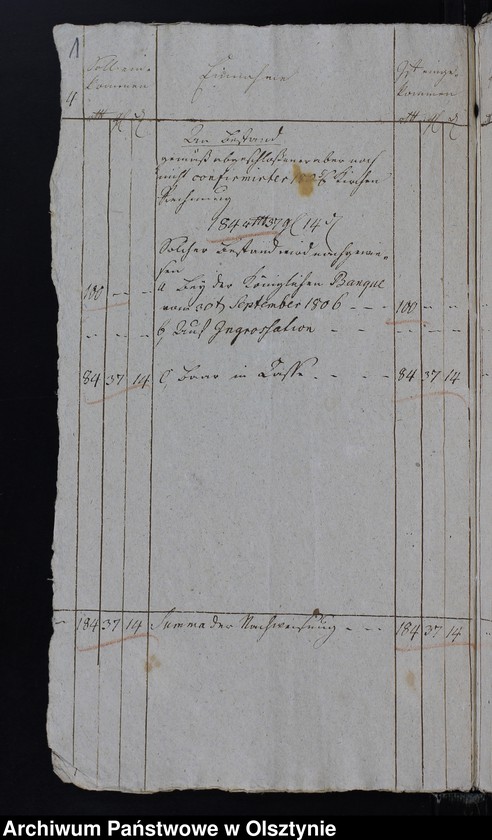 1
Soll ein-
kommen
Einnahme
Ist einge-
kommen
4
An Bestand
gemäß abgeschloßener aber noch
nicht confirmirter Kirchen
Rechnung
184 37 14
Solcher Bestand wird nachgewie-
sen
100 – – a, Bey der Königlichen Banque
vom 30t September 1806 – – 100 – –
– – – b, Auf Ingrossation – – – – –
84 37 14 c, Baar in Casse – – – 84 37 14
184 37 14 Summa der Nachweisung – – – 184 37 14
Archiwum Państwowe w Olsztynie